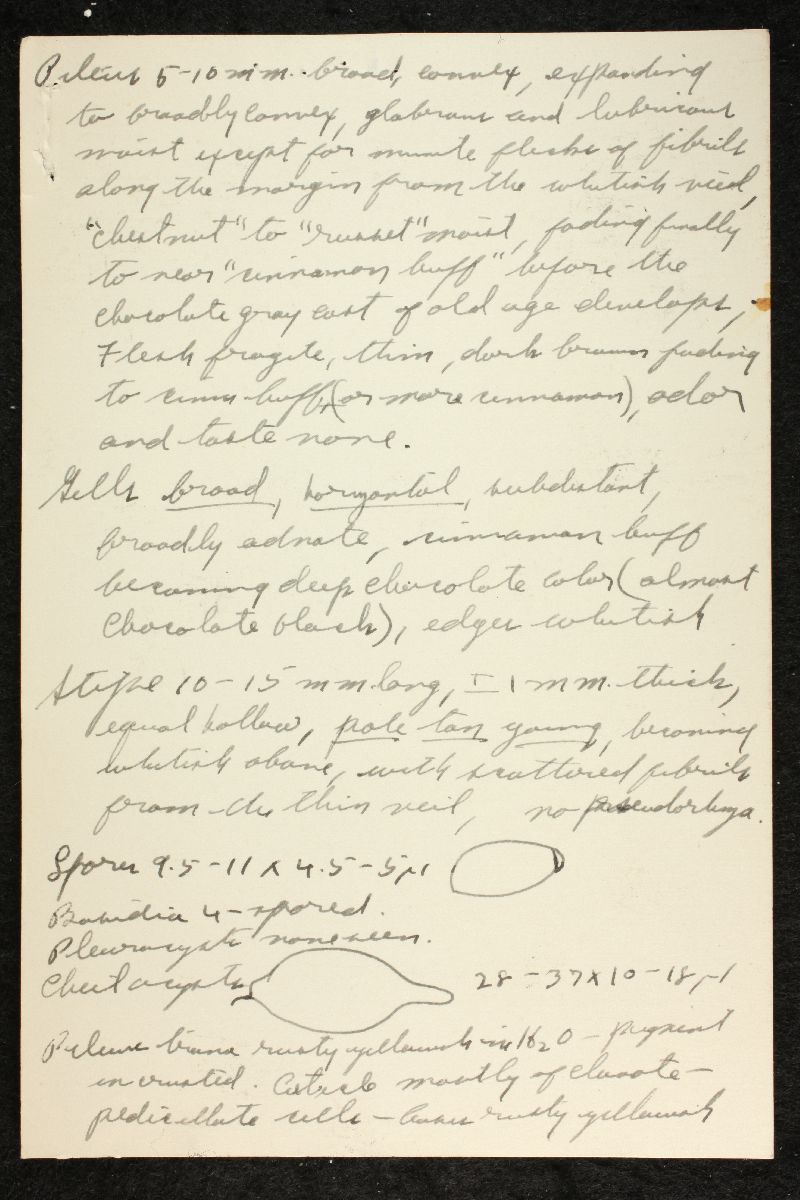 Pileus 5-10 mm. broad, convex, expanding
to broadly convex, glabrous and lubricous
moist except for minute flecks of fibrils
along the margin from the whitish veil,
"chestnut" to "russet" moist, fading finally
to near "cinnamon buff" before the
chocolate gray cast of old age develops,
Flesh fragile, thin, dark brown fading
to cinn buff (or more cinnamon), odor
and taste none.
Gills broad, horizontal, subdistant,
broadly adnate, cinnamon buff
becoming deep chocolate color (almost
Chocolate black), edges whitish
Stipe 10-15 mm. long, ± 1 mm. thick,
equal hollow, pale tan young, becoming
whitish above, with scattered fibrils
from the thin veil, no pseudorhiza.
Spores 9.5-11 x 4.5-5 µ
Basidia 4-spored.
Pleurocysts none seen.
Cheilocysts 28-37 x 10-18 µ
Pileus trama rusty yellowish in H2O - pigment
incrusted. Cuticle mostly of clavate-
pedicellate cells - bases rusty yellowish